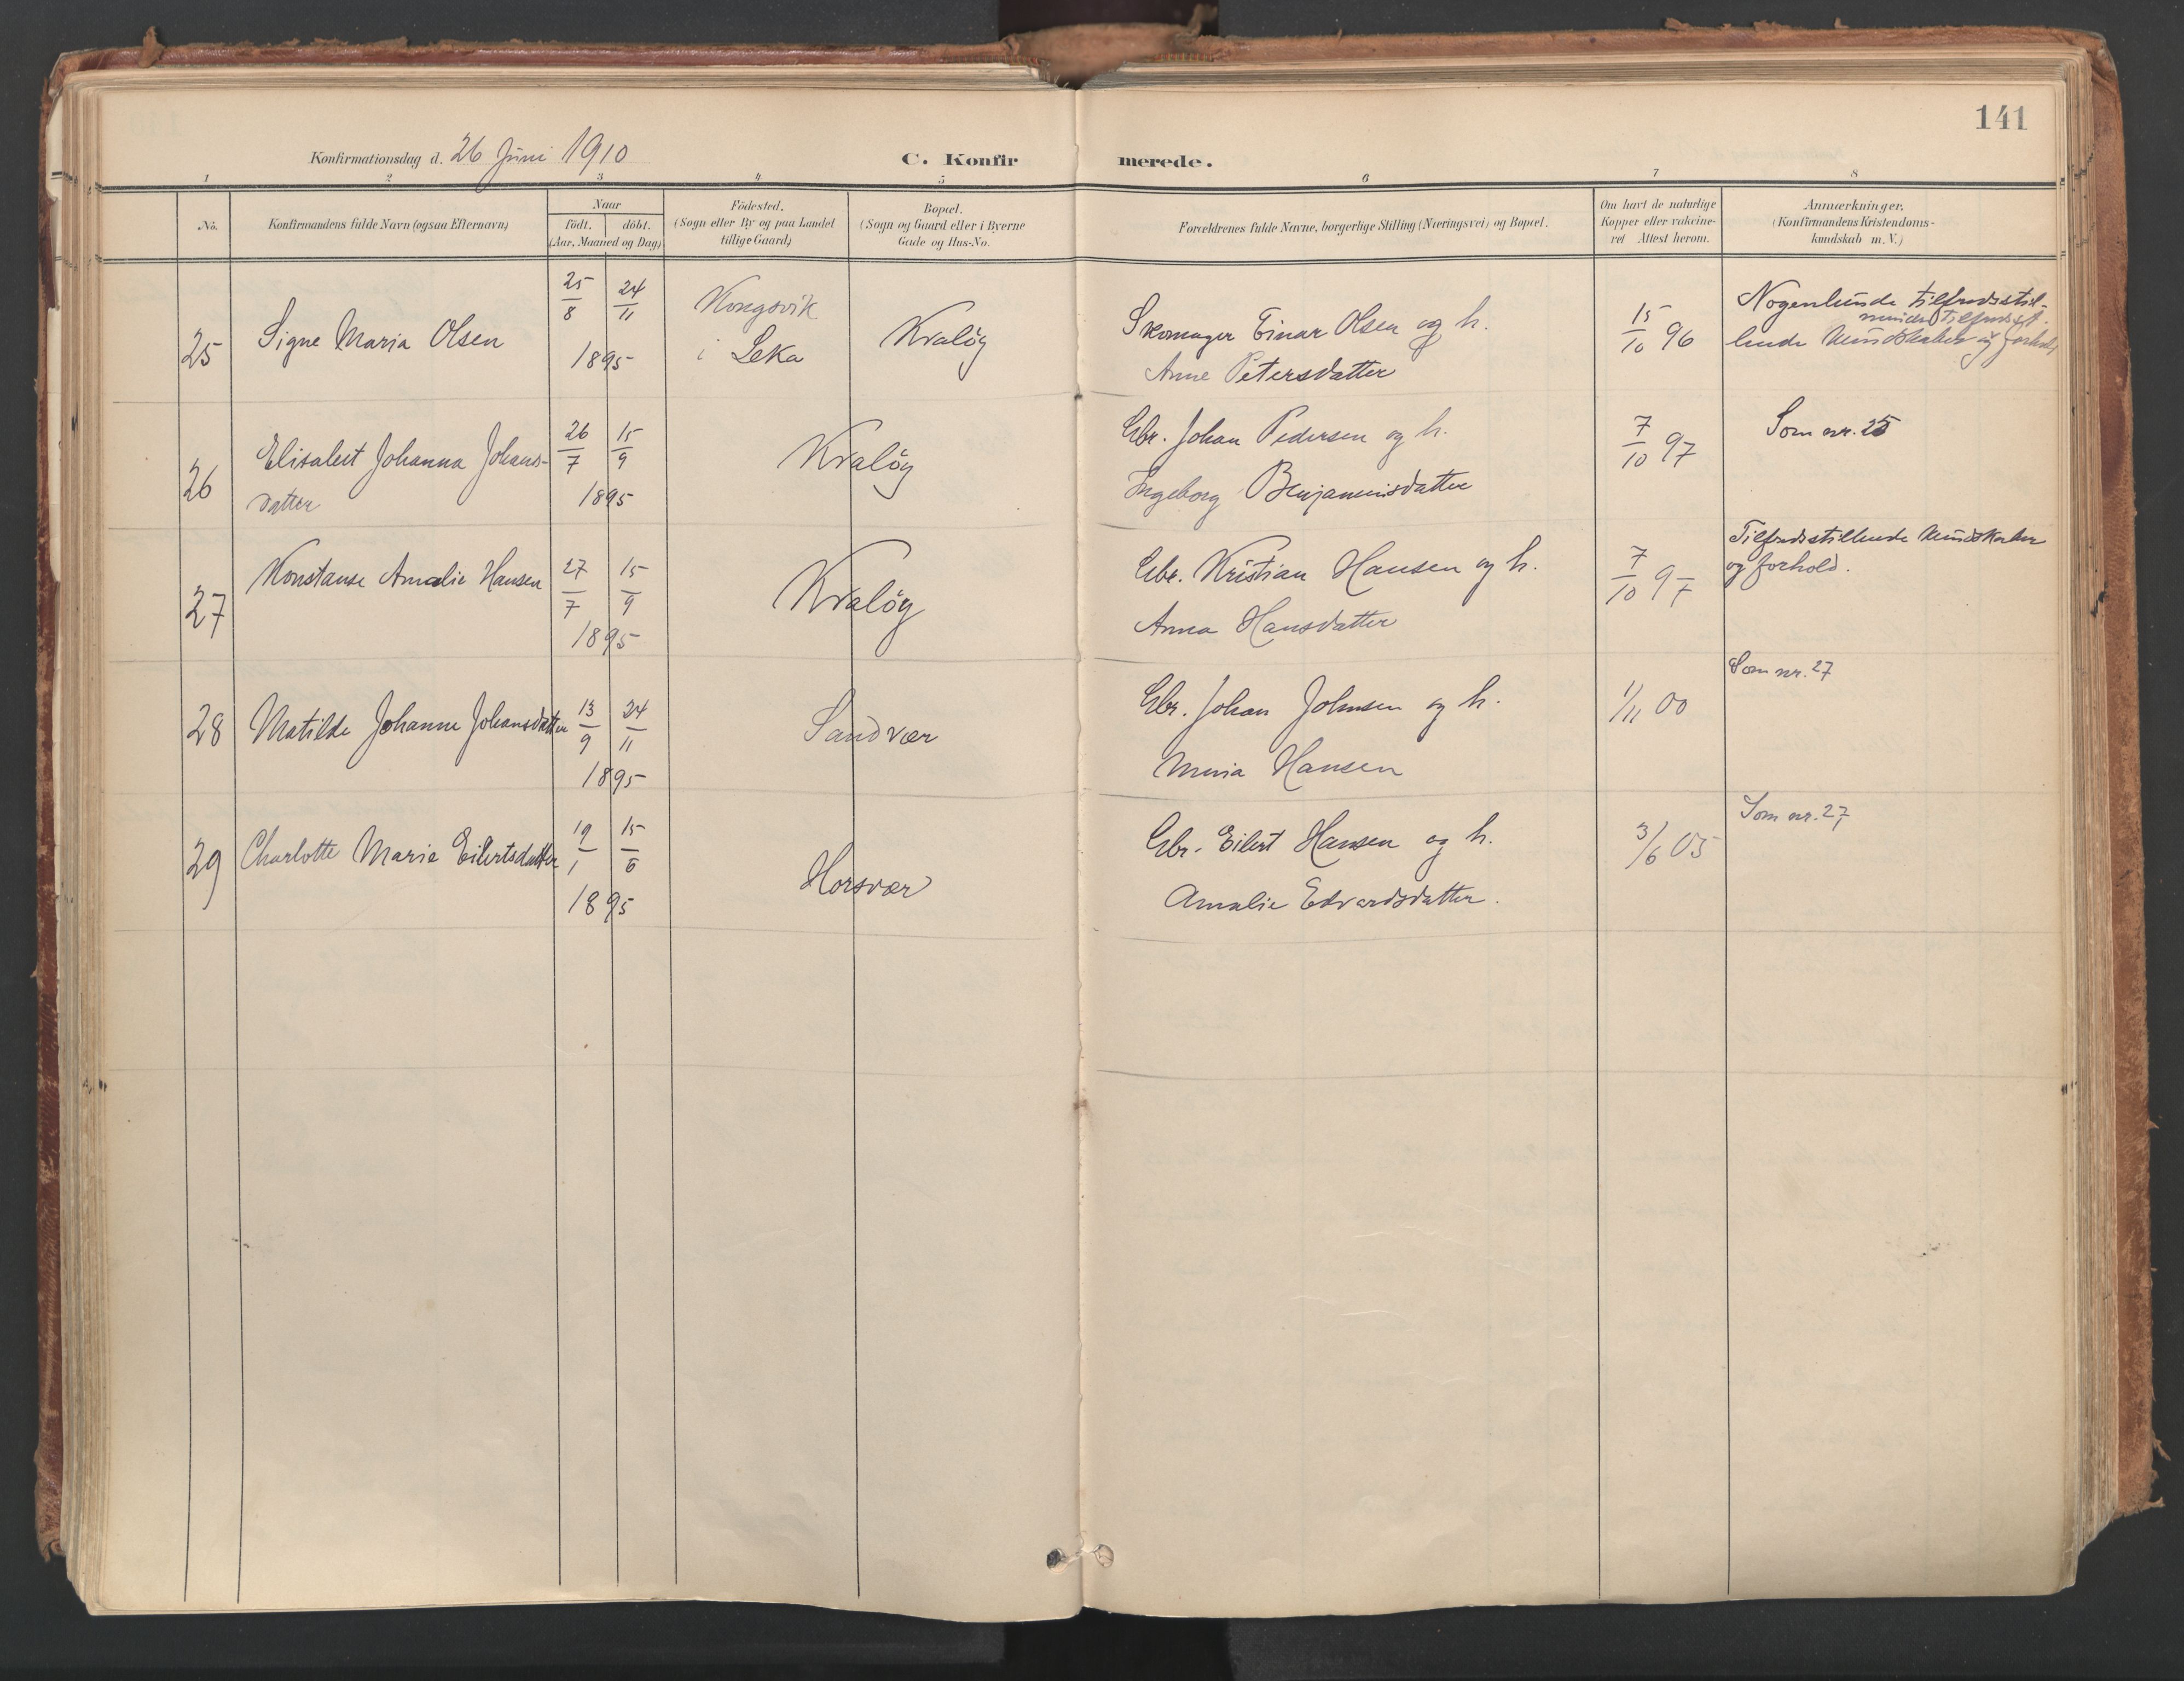 141
Konfirmationsdag d. 26 Juni 1910
C. Konfirmerede.
1 2 3 4 5 6 7 8
No.
Konfirmandens fulde Navn (ogsaa Efternavn)
Naar
födt. döbt.
(Aar, Maaned og Dag)
Födested.
(Sogn eller By og paa Landet
tillige Gaard)
Bopæl.
(Sogn og Gaard eller i Byerne
Gade og Hus-No.
Forældrenes fulde Navne, borgerlige Stilling (Næringsvei) og Bopæl.
Om havt de naturlige
Kopper eller vakcine-
ret Attest herom.
Anmærkninger.
(Konfirmandens Kristendoms-
kundskab m. V.)
25 Signe Maria Olsen
25/8 24/11
1895
Kongsvik
i Leka
Kvaløy
Skomager Einar Olsen og h.
Anne Petersdatter
15/10 96
Nogenlunde tilfredsstil-
mindre tilfredsst.
lende Kundskaber og forhold
26 Elisabet Johanna Johans-
datter
26/7 15/9
1895
Kvaløy
Gbr. Johan Pedersen og h.
Ingeborg Benjaminsdatter
7/10 97
Som nr. 25
27 Konstanse Amalie Hansen
27/7 15/9
1895
Kvaløy
Gbr. Kristian Hansen og h.
Anna Hansdatter
7/10 97
Tilfredsstillende Kundskaber
og forhold.
28 Matilde Johanne Johansdatter
13/9 24/11
1895
Sandvær
Gbr. Johan Johnsen og h.
Maria Hansen
1/11 00
Som nr. 27
29 Charlotte Marie Eilertsdatter
19/1 15/6
1895
Horsvær
Gbr. Eilert Hansen og h.
Amalie Edvardsdatter.
3/6 05
Som nr. 27